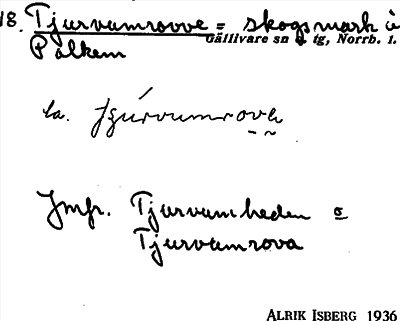 18. Tjurvumrovve = skogsmark i
Pålkem Gällivare sn o tg, Norrb. l.
la.
Jmfr. Tjurvumheden o
Tjurvumrova
ALRIK ISBERG 1936